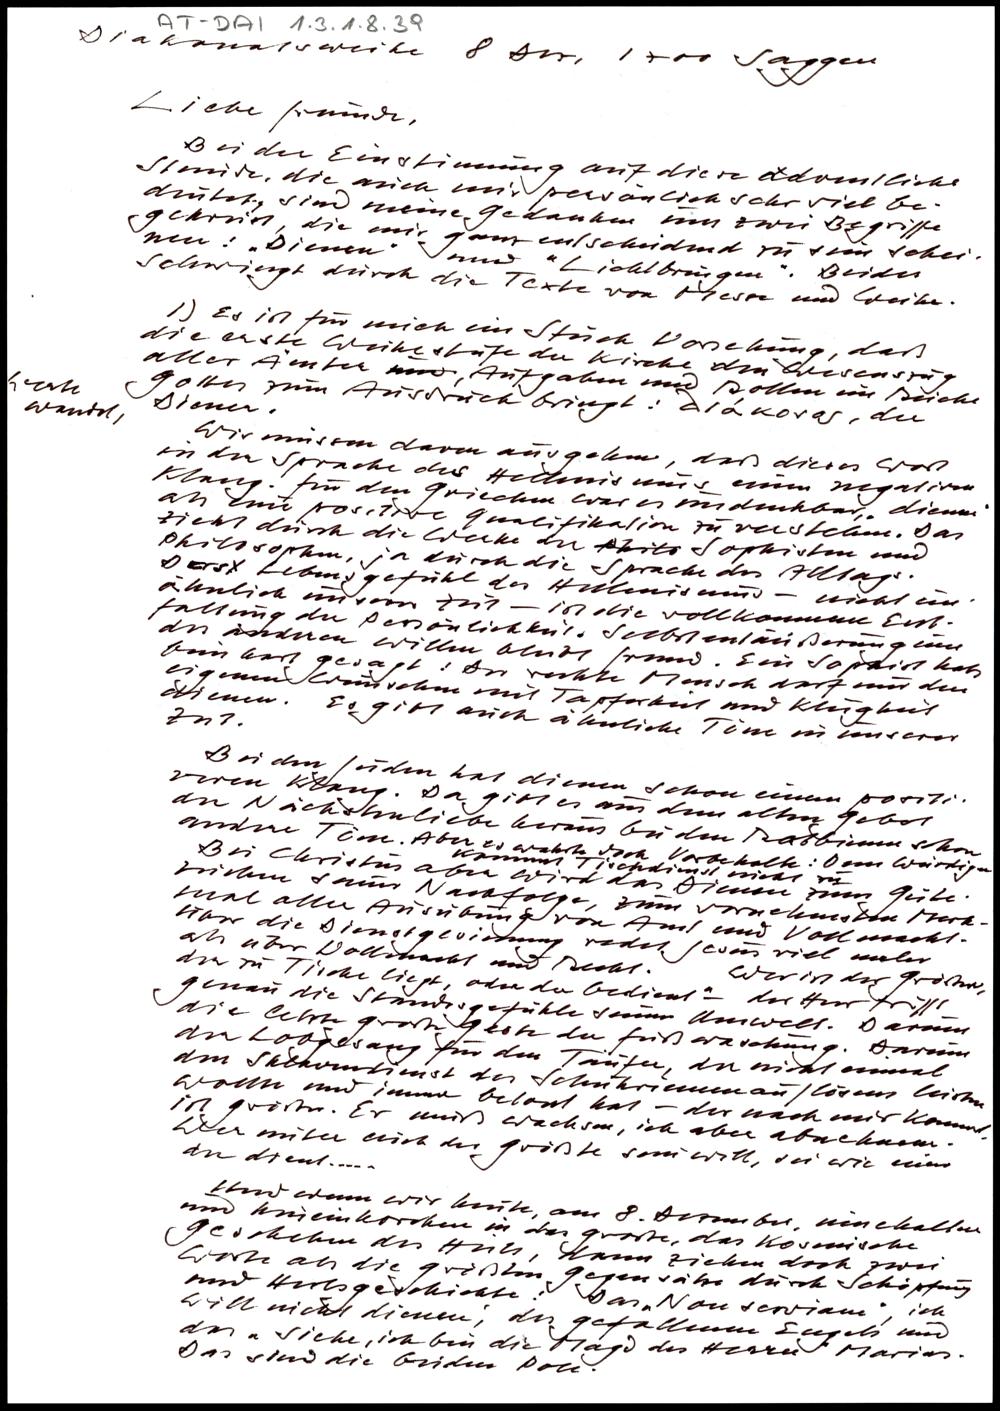 AT-DAI 1.3.1.8.39
Diakonatsweihe 8 Dez, 1700 Saggen
Liebe Freunde,
Bei der Einstimmung auf diese adventliche
Stunde, die auch mir persönlich sehr viel be-
deutet, sind meine Gedanken um zwei Begriffe
gekreist, die mir ganz entscheidend zu sein schei-
nen: „Dienen" und „Lichtbringen". Beides
schwingt durch die Texte von Messe und Weihe.
1) Es ist für mich ein Stück Vorsehung, daß
die erste Weihestufe der Kirche den Wesenszug
aller Ämter, Aufgaben und Rollen im Reiche
Gottes zum Ausdruck bringt: diákonos, der
Diener.
Wir müssen davon ausgehen, daß dieses Wort
in der Sprache des Hellenismus einen negativen
Klang. Für den Griechen war es undenkbar, „dienen"
als eine positive Qualifikation zu verstehen. Das
zieht durch die Werke der Sophisten und
Philosophen, ja durch die Sprache des Alltags.
Das Lebensgefühl des Hellenismus – nicht un-
ähnlich unserer Zeit – ist die vollkommene Ent-
faltung der Persönlichkeit. Selbstentäußerung um
des anderen willen bleibt fremd. Ein Sophist hat
beinhart gesagt: Der rechte Mensch darf nur den
eigenen Wünschen mit Tapferkeit und Klugheit
dienen. Es gibt auch ähnliche Töne in unserer
Zeit.
Bei den Juden hat dienen schon einen positi-
veren Klang. Da gibt es aus dem alten Gebot
der Nächstenliebe heraus bei den Rabbinern schon
andere Töne. Aber es wahrte doch Vorbehalte: Dem Würdigen
kommt Tischdienst nicht zu
Bei Christus aber wird das Dienen zum Güte-
zeichen seiner Nachfolge, zum vornehmsten Merk-
mal aller Ausübung von Amt und Vollmacht.
Über die Dienstgesinnung redet Jesus viel mehr
als über Vollmacht und Recht. Wer ist der größere,
der zu Tische liegt, oder der bedient" – der Herr trifft
genau die Standesgefühle seiner Umwelt. Darum
die letzte große Geste der Fußwaschung. Darum
der Lobgesang für den Täufer, der nicht einmal
den Sklavendienst des Schuhriemenauflösens leisten
wollte und immer betont hat – der nach mir kommt,
ist größer. Er muß wachsen, ich aber abnehmen.
Wer unter euch der größte sein will, sei wie einer
der dient.....
Und wenn wir heute, am 8. Dezember, innehalten
und hineinhorchen in das große, das kosmische
Geschehen des Heils, dann ziehen doch zwei
Worte als die größten Gegensätze durch Schöpfung
und Heilsgeschichte: Das „Non serviam", ich
will nicht dienen, des gefallenen Engels und
das „Siehe, ich bin die Magd des Herrn" Mariens.
Das sind die beiden Pole.